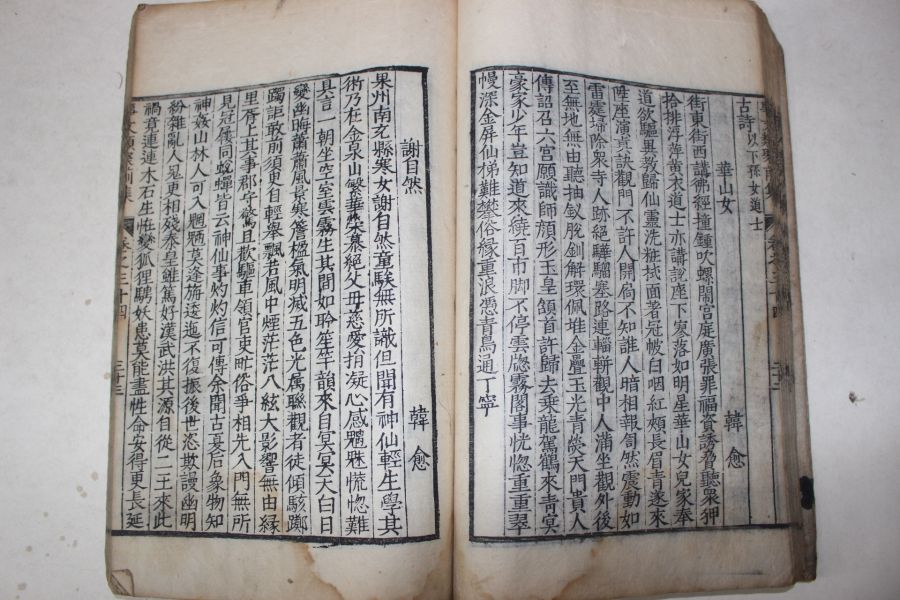 古詩 以下孫女道士
華山女 韓愈
街東街西講佛經撞鍾吹螺鬧宮庭廣張罪福資誘脅聽衆狎
恰排浮萍黃衣道士亦講說座下寥落如明星華山女兒家奉
道欲驅異教歸仙靈洗粧拭面著冠帔白咽紅頰長眉青遂來
陞座演眞訣觀門不許人開扃不知誰人暗相報訇然震動如
雷霆掃除衆寺人跡絕驊騮塞路連輜軿觀中人滿坐觀外後
至無地無由聽抽釵脫釧解環佩堆金疊玉光青熒天門貴人
傳詔召六宮願識師顏形玉皇頷首許歸去乘龍駕鶴來青冥
豪家少年豈知道來繞百帀脚不停雲窓霧閣事恍惚重重翠
幔深金屏仙梯難攀俗緣重浪憑青鳥通丁寧
謝自然 韓愈
果州南充縣寒女謝自然童騃無所識但聞有神仙輕生學其
術乃在金泉山繁華榮慕絕父母慈愛捐凝心感魑魅慌惚難
具言一朝坐空室雲霧生其間如聆笙竽韻來自冥冥天白日
變幽晦蕭蕭風景寒簷楹氣明滅五色光屬聯觀者徒傾駭躑
躅詎敢前須臾自輕舉飄若風中煙茫茫八紘大影響無由緣
里胥上其事郡守驚且歎驅車領官吏甿俗爭相先入門無所
見冠履同蛻蟬皆云神仙事灼灼信可傳余聞古夏后象物知
神姦山林人可入魍魎莫逢旃逶迤不復振後世恣欺謾幽明
紛雜亂人鬼更相殘秦皇雖篤好漢武洪其源自從二主來此
禍竟連連木石生怪變狐狸騁妖患莫能盡性命安得更長延
卷之三十四 三十三